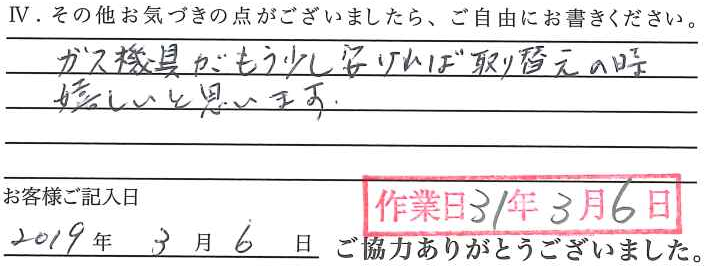 Ⅳ．その他お気づきの点がございましたら、ご自由にお書きください。
ガス機具がもう少し安ければ取り替えの時
嬉しいと思います.
お客様ご記入日
作業日31年3月6日
2019年 3月6日 ご協力ありがとうございました。